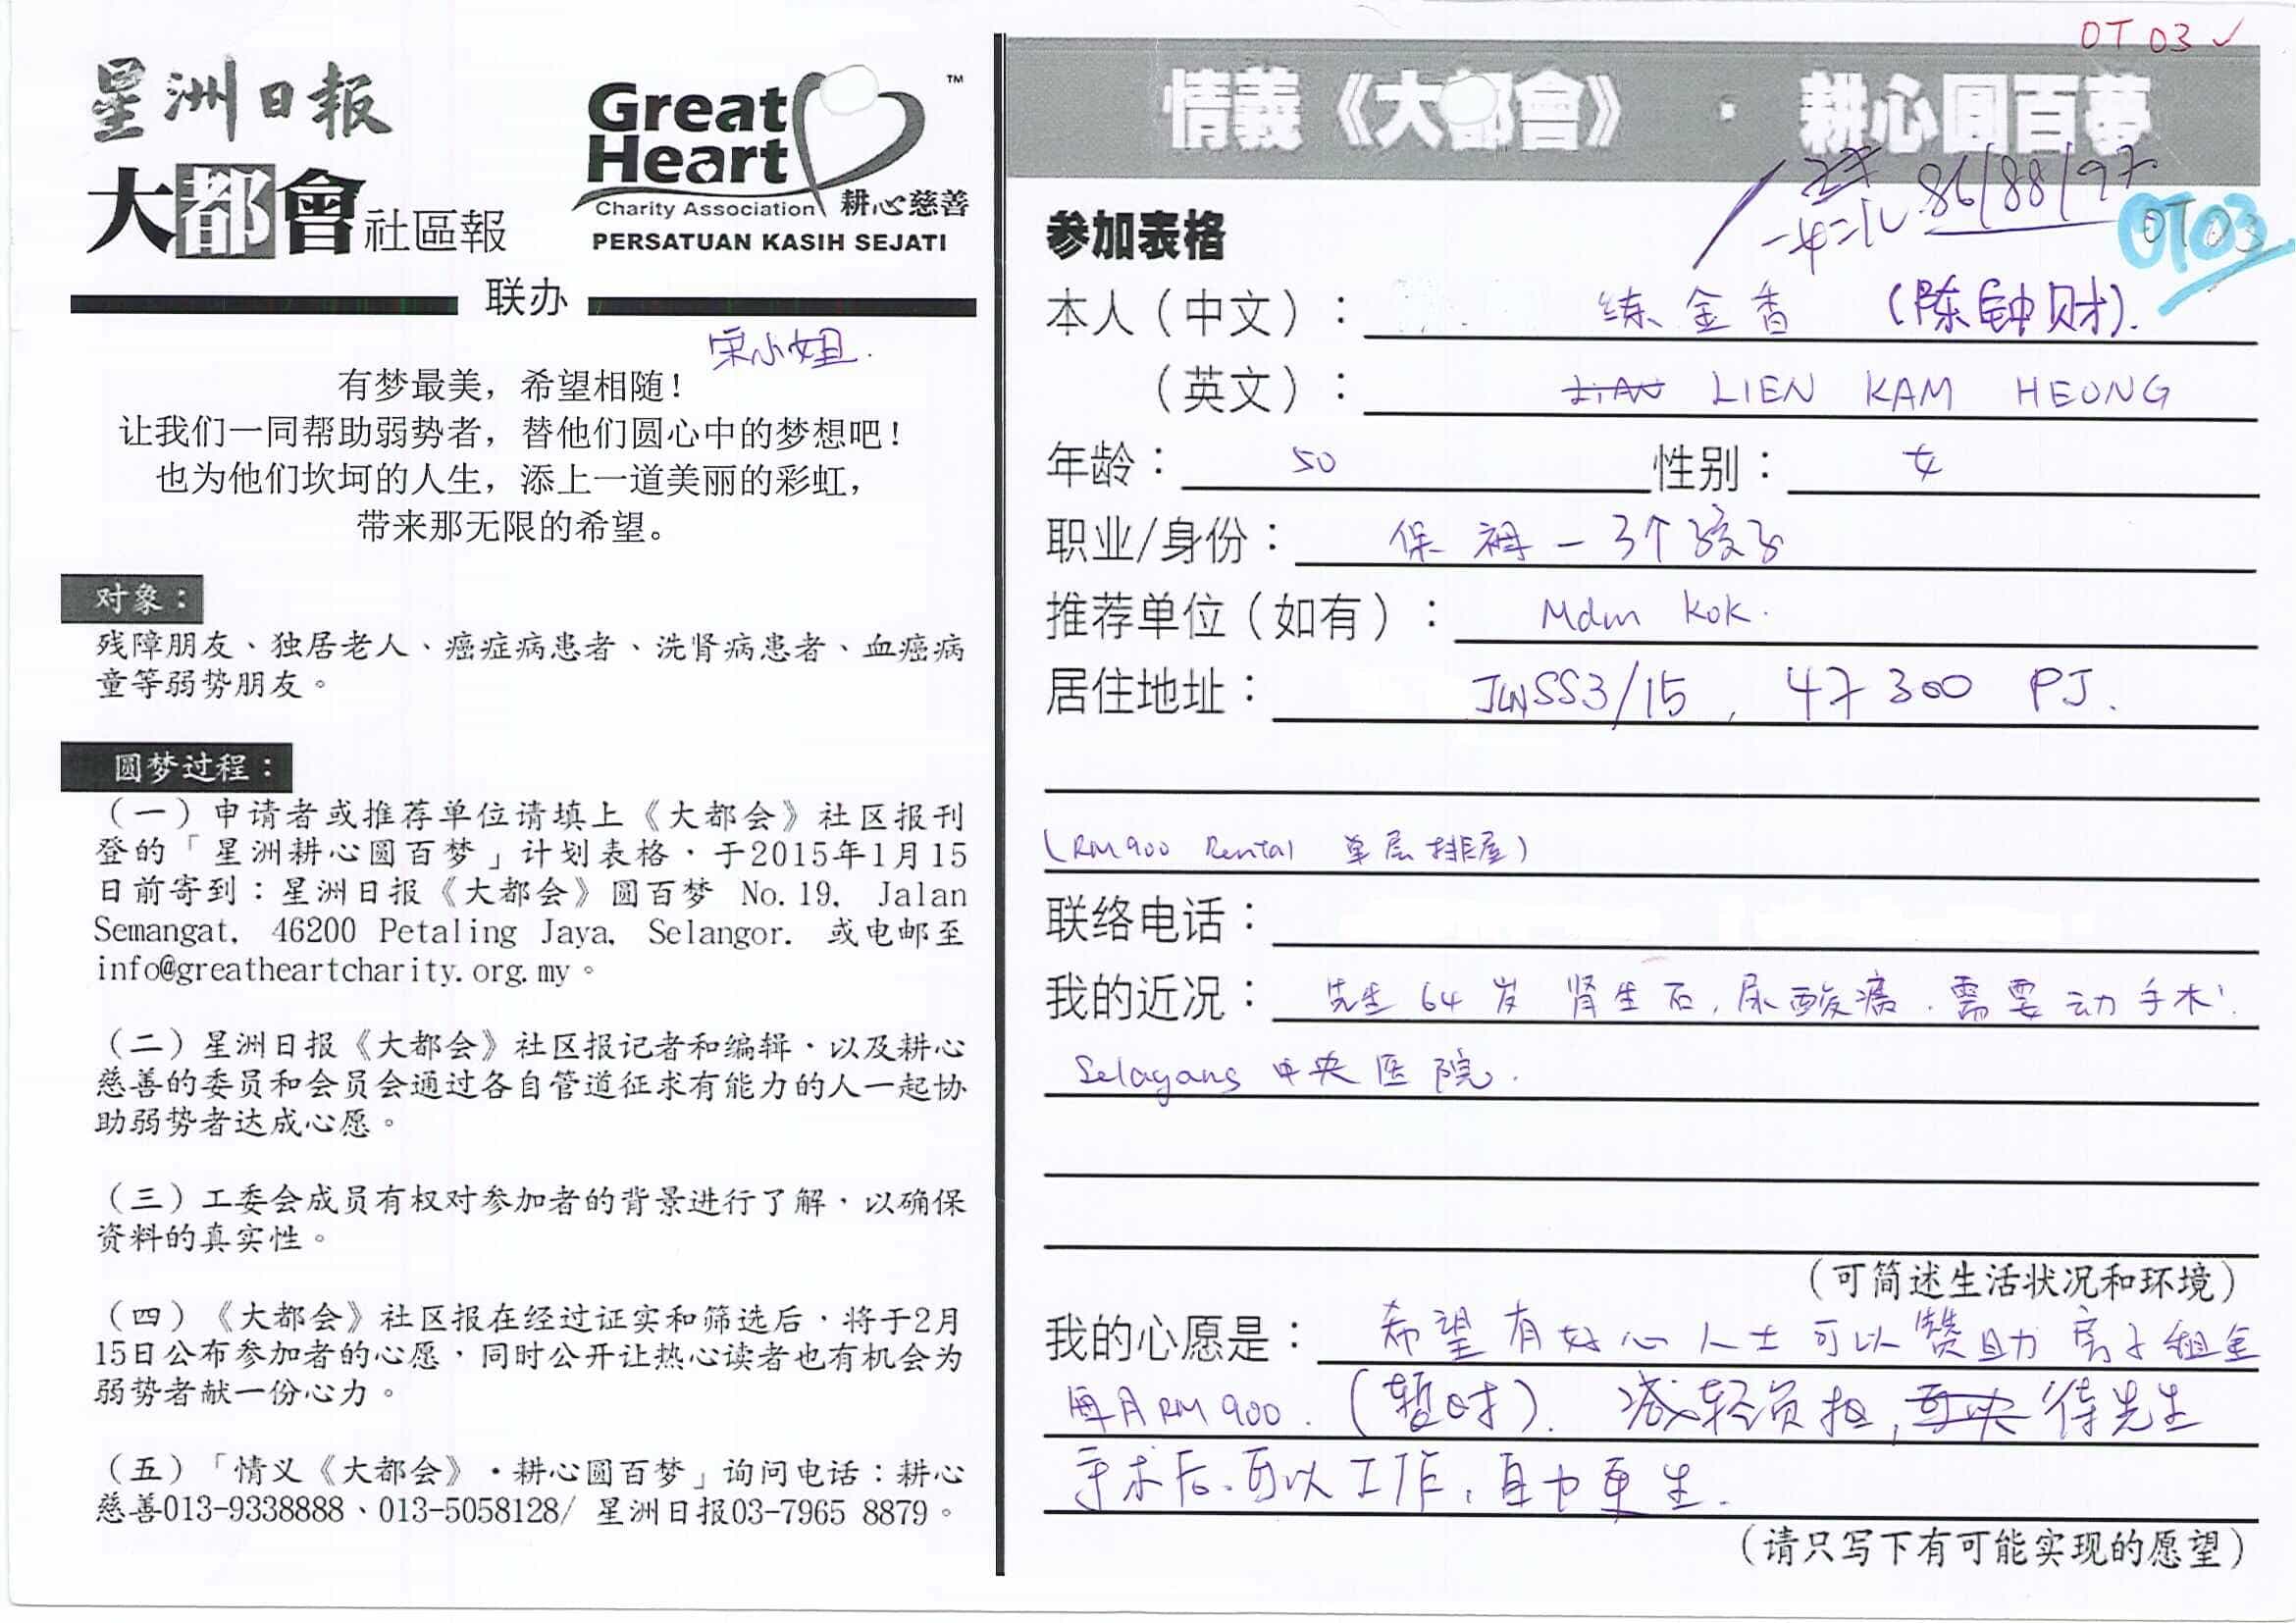 星洲日报
大都會社區報
Great
Heart
™
Charity Association 耕心慈善
PERSATUAN KASIH SEJATI
联办
宋小姐.
有梦最美，希望相随！
让我们一同帮助弱势者，替他们圆心中的梦想吧！
也为他们坎坷的人生，添上一道美丽的彩虹，
带来那无限的希望。
对象：
残障朋友、独居老人、癌症病患者、洗肾病患者、血癌病
童等弱势朋友。
圆梦过程：
（一）申请者或推荐单位请填上《大都会》社区报刊
登的「星洲耕心圆百梦」计划表格，于2015年1月15
日前寄到：星洲日报《大都会》圆百梦 No.19, Jalan
Semangat, 46200 Petaling Jaya, Selangor. 或电邮至
info@greatheartcharity.org.my。
（二）星洲日报《大都会》社区报记者和编辑，以及耕心
慈善的委员和会员会通过各自管道征求有能力的人一起协
助弱势者达成心愿。
（三）工委会成员有权对参加者的背景进行了解，以确保
资料的真实性。
（四）《大都会》社区报在经过证实和筛选后，将于2月
15日公布参加者的心愿，同时公开让热心读者也有机会为
弱势者献一份心力。
（五）「情义《大都会》·耕心圆百梦」询问电话：耕心
慈善013-9338888、013-5058128/ 星洲日报03-7965 8879。
OT 03 ✓
情義《大都會》 · 耕心圓百夢
86/88/97
OT03
参加表格
本人（中文）： 练金香 （陈钟财）.
（英文）： LIEN KAM HEONG
年龄： 50 性别： 女
职业/身份： 保姆 - 3个孩子
推荐单位（如有）： Mdm Kok.
居住地址： JLN SS3/15, 47300 PJ.
(RM900 Rental 单层排屋)
联络电话：
我的近况： 先生64岁 肾生石，尿酸痛．需要动手术
Selayang 中央医院．
（可简述生活状况和环境）
我的心愿是： 希望有好心人士可以赞助房子租金
每月RM900.（暂时）．减轻负担，待先生
手术后．可以工作，自力更生．
（请只写下有可能实现的愿望）